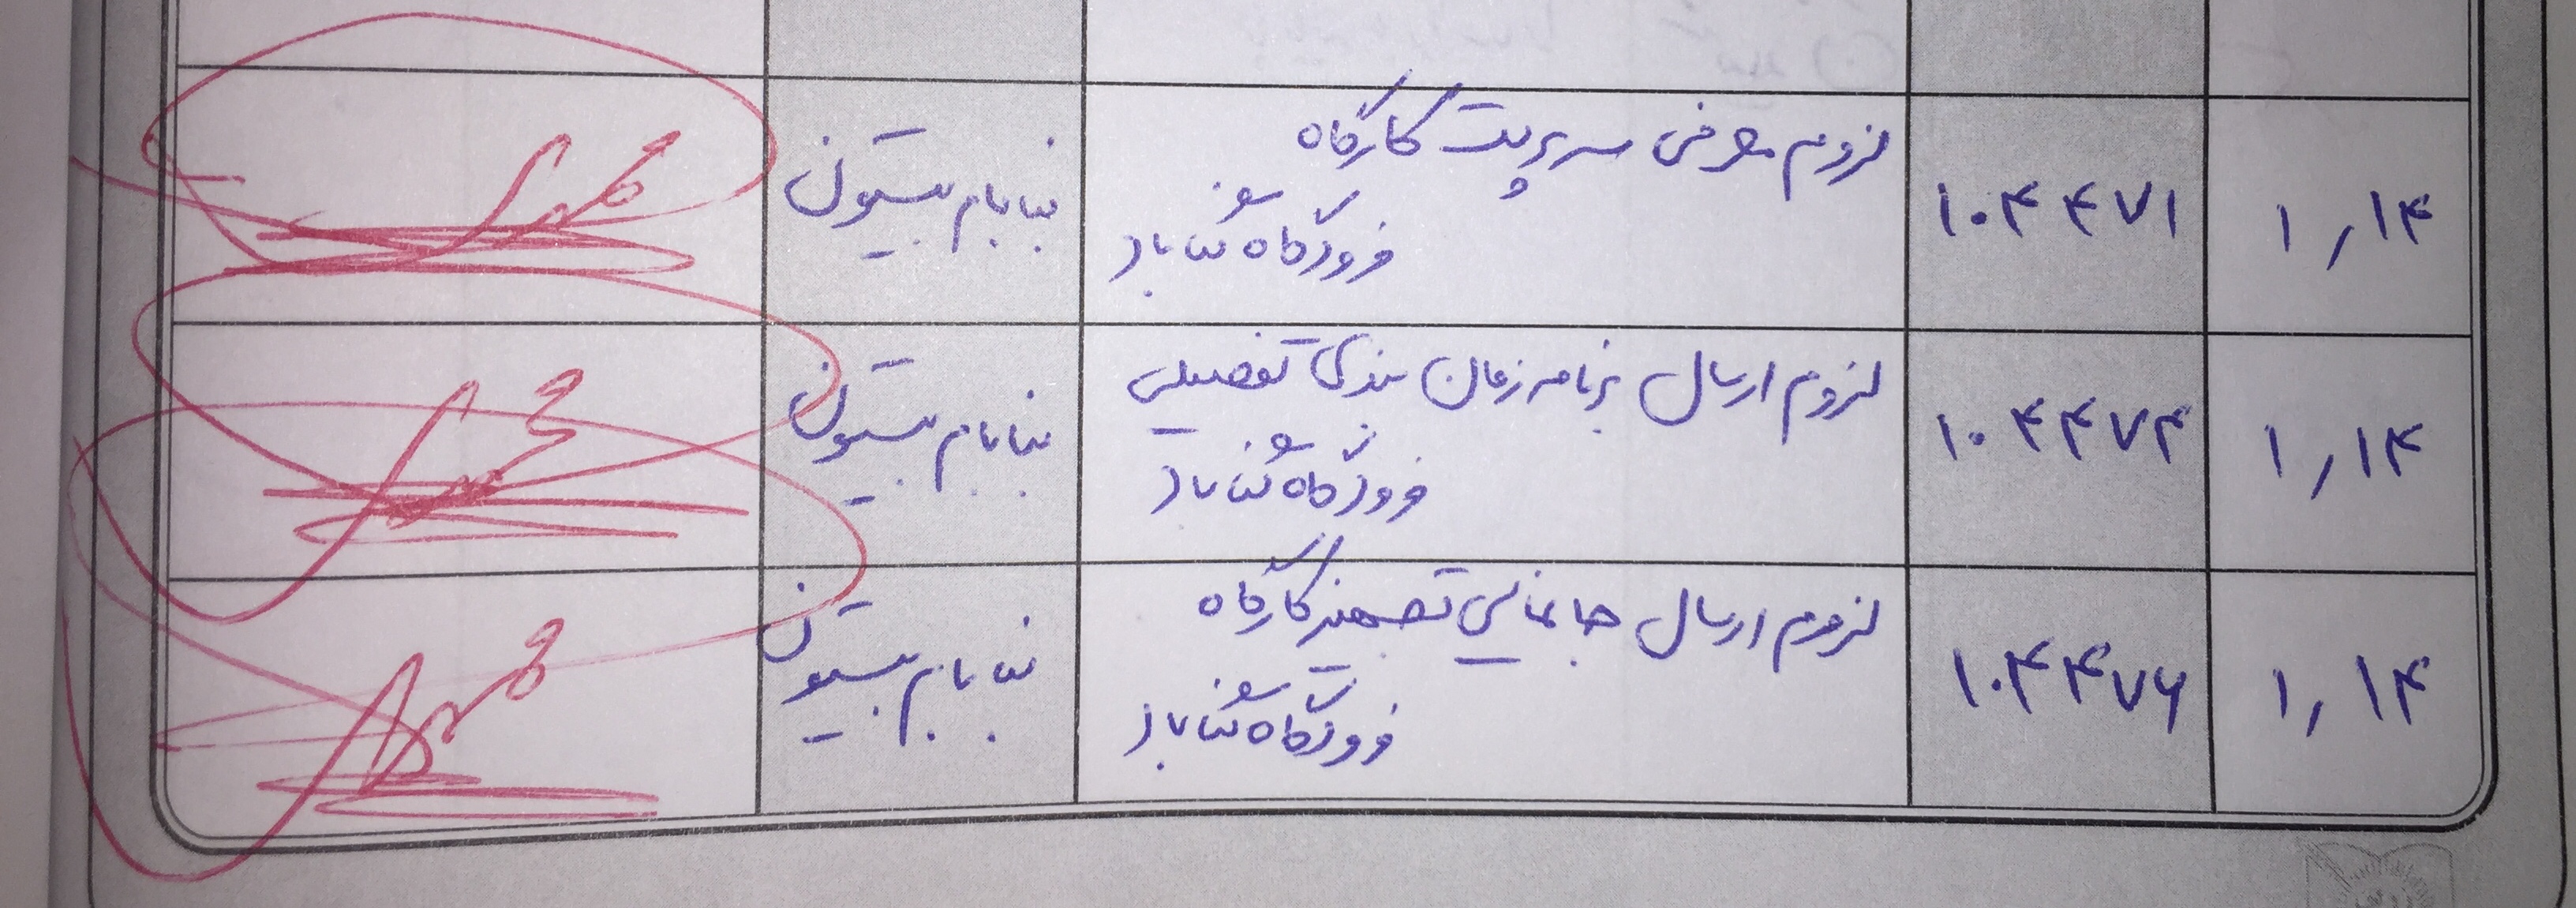 ۱٫۱۴
۱۰۴۴۷۱
لزوم معرفی سرپرست کارگاه
فرودگاه گناباد
بنا بام بیستون
۱٫۱۴
۱۰۴۴۷۴
لزوم ارسال برنامه زمان بندی تفصیلی
فرودگاه گناباد
بنا بام بیستون
۱٫۱۴
۱۰۴۴۷۶
لزوم ارسال جانمائی تجهیز کارگاه
فرودگاه گناباد
بنا بام بیستون